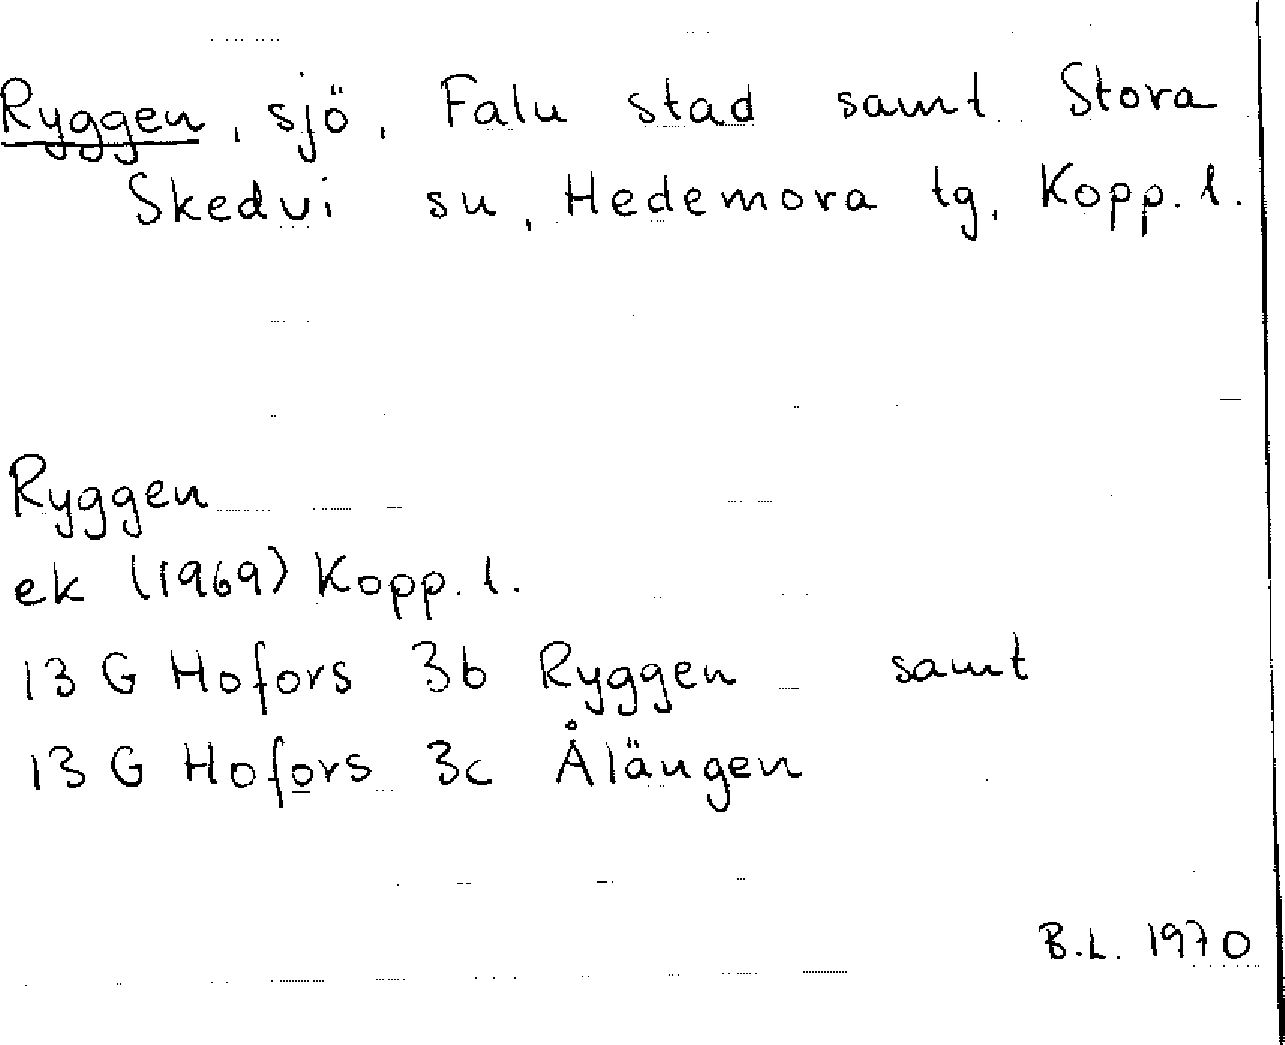 Ryggen, sjö, Falu stad samt Stora
Skedvi sn, Hedemora tg, Kopp. l.
Ryggen
ek (1969) Kopp. l.
13 G Hofors 3b Ryggen samt
13 G Hofors 3c Ålängen
B.L. 1970